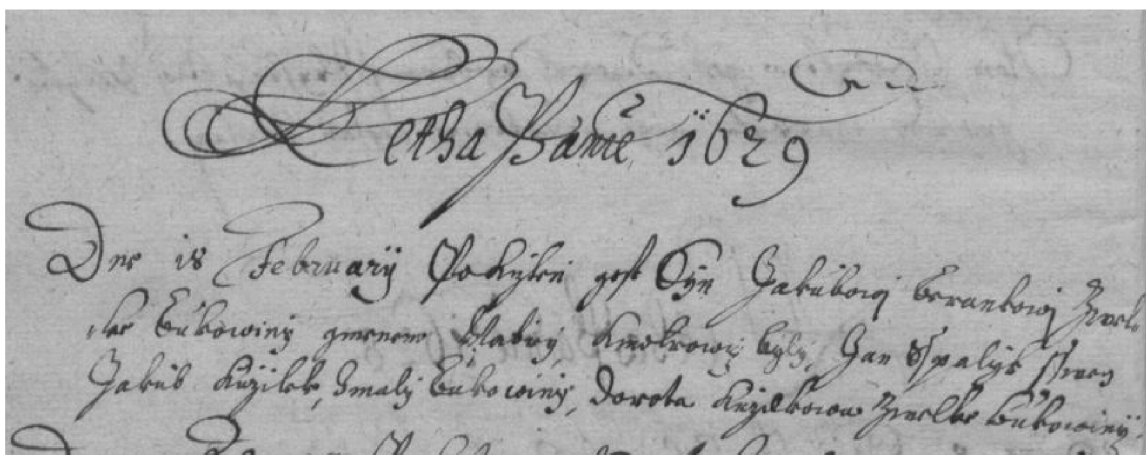 Letha Panie 1629
Dne 18 February Pokrzten gest Syn Jakubowj Berankowj Zwelk
ke Bukowiny gmenem Kmotrowy byly, Jan Sspalyk
Jakub Kuzilek, Zmaly Bukowiny, Dorota Kuzilkowa Zwelke Bukowiny.